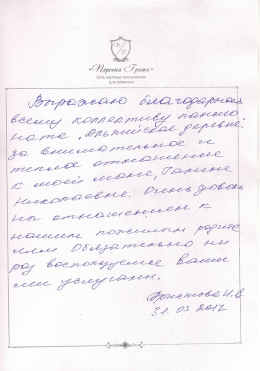 «Пе
сеть частных пансионатов
для пожилых
Выражаю благодарность
всему коллективу пансио
ната „Альпийская деревня"
за внимательное и
теплое отношение
к моей маме, Галине
Николаевне. Очень доволь
на отношением к
нашим пожилым родите
лям Обязательно ни
раз воспользуемся ваши
ми услугами.
31.03 2017